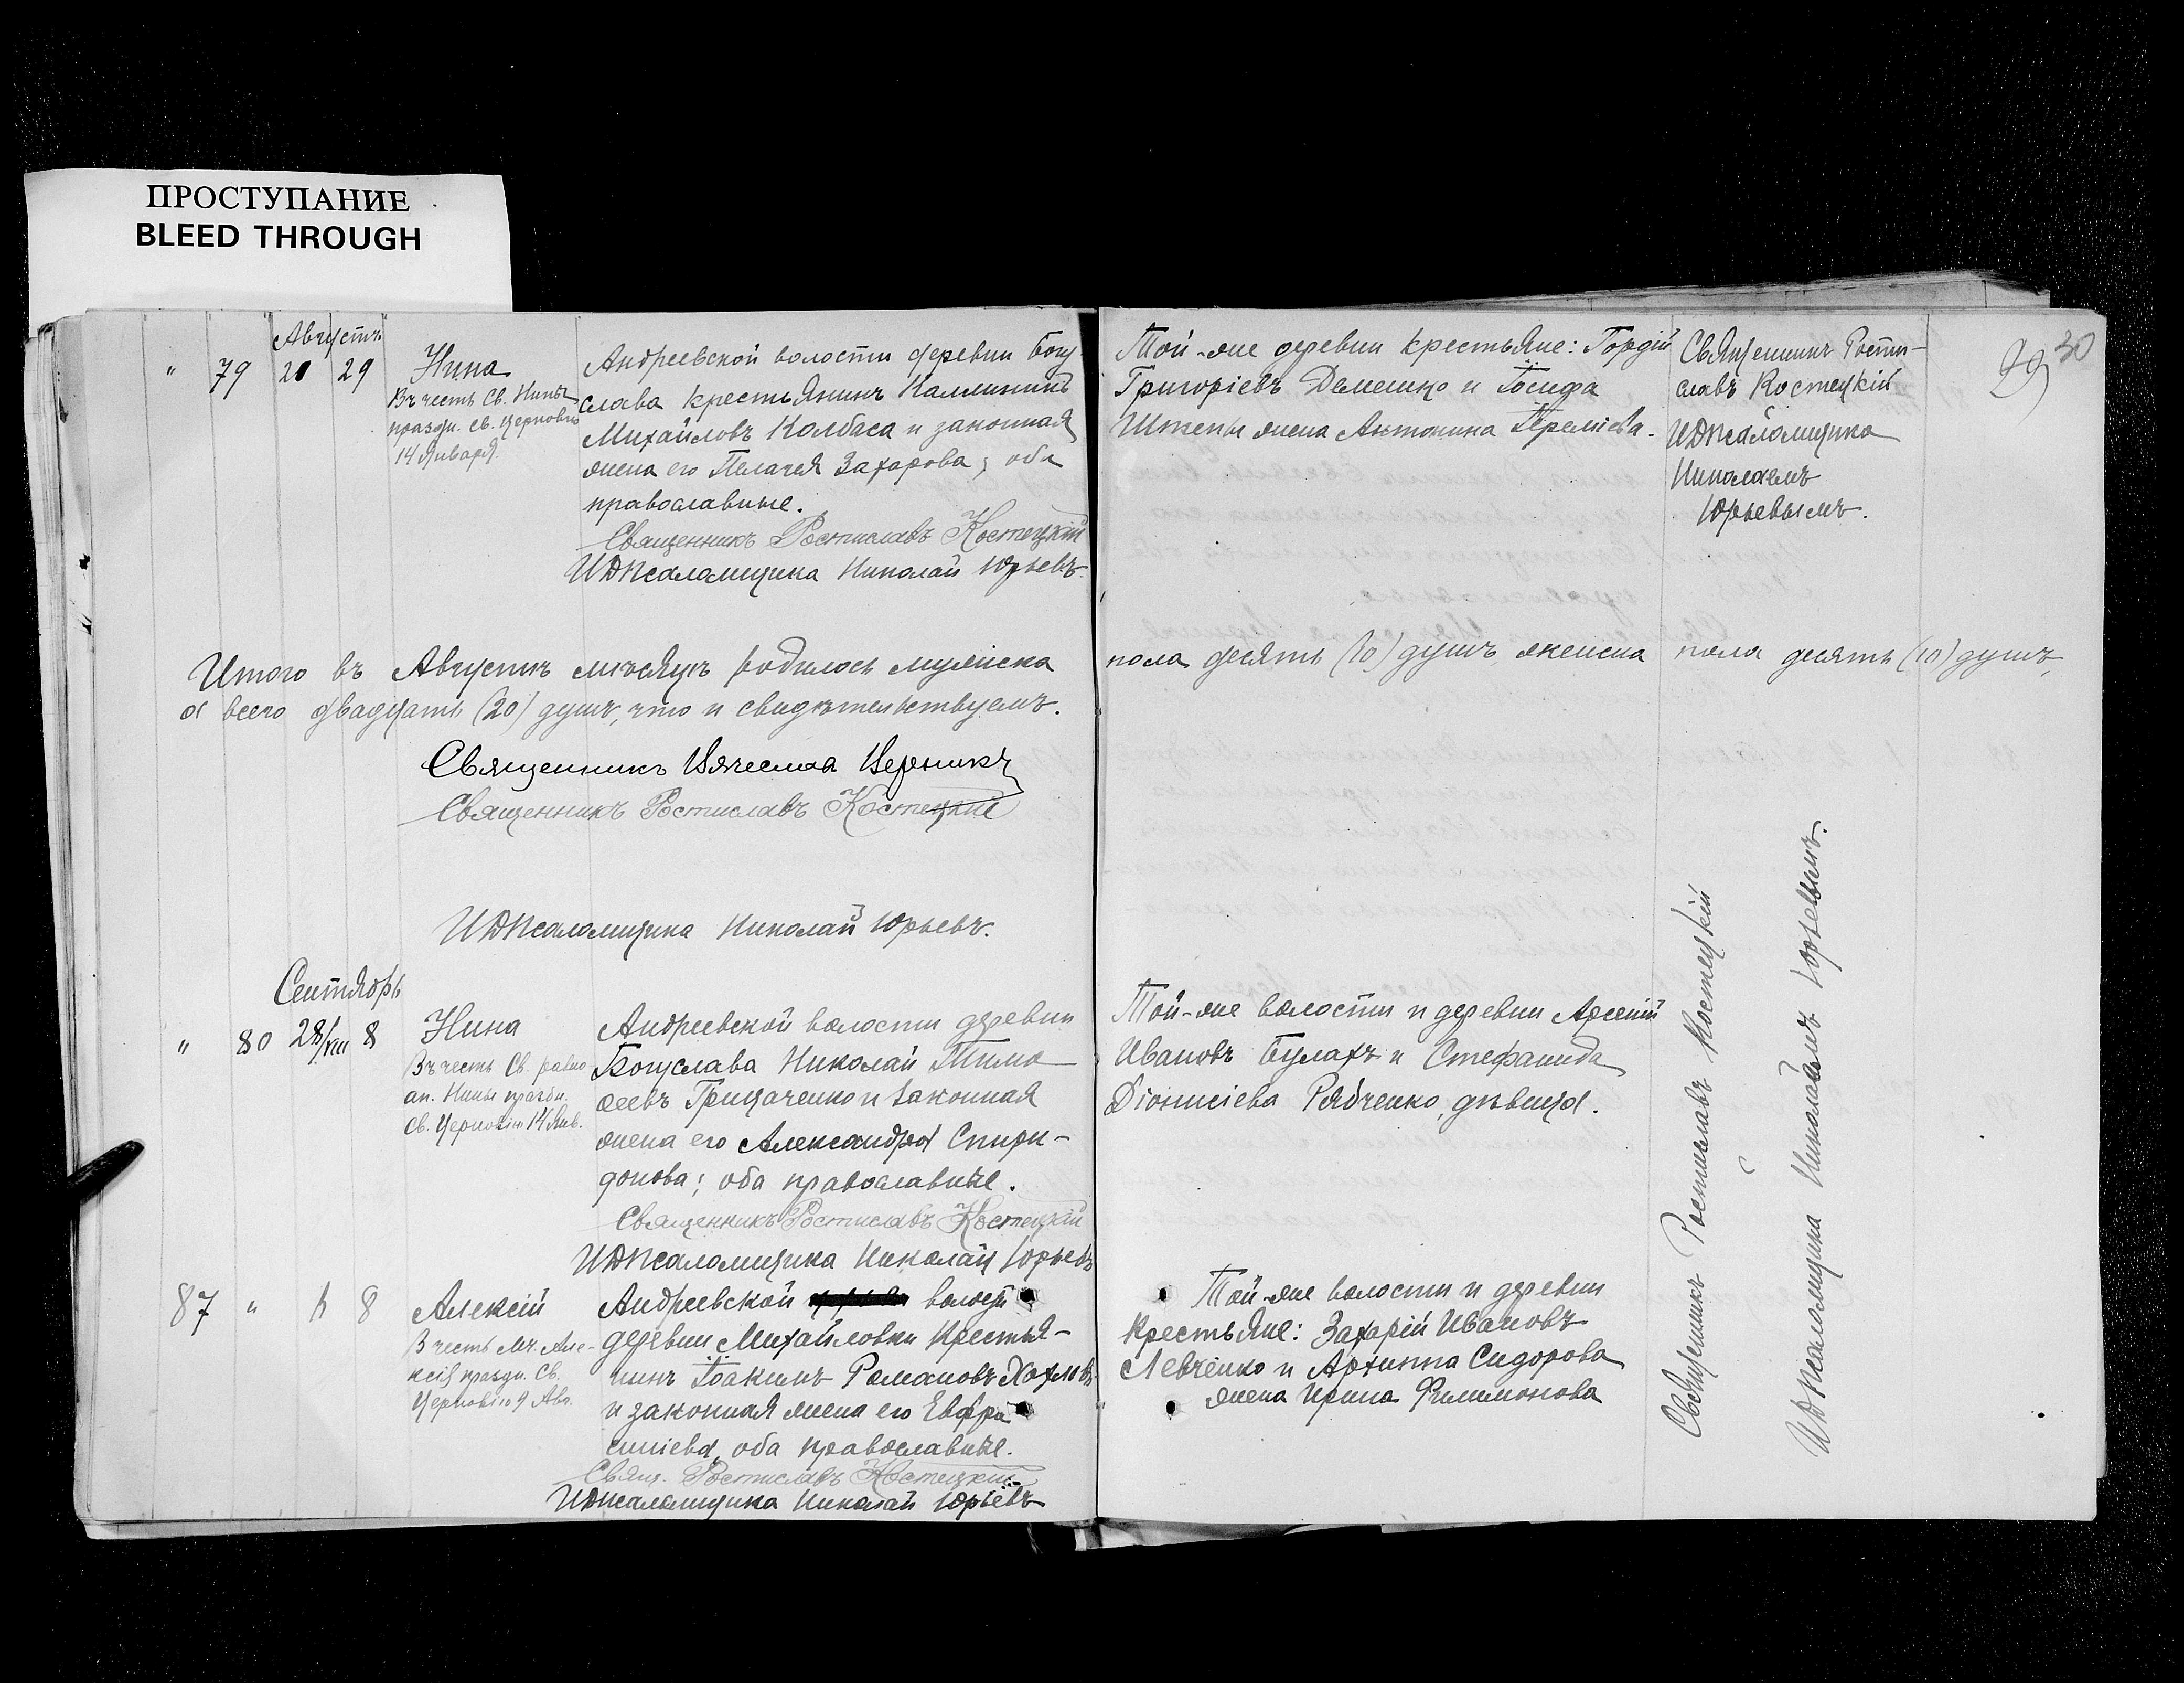 ПРОСТУПАНИЕ
BLEED THROUGH
30
29
Августъ
" 79 20 29
Нина
Въ честь Св. Нины
праздн. св. церковью
14 Января.
Андреевской волости деревни Богу-
слава крестьянинъ Каллиникъ
Михайловъ Колбаса и законная
жена его Пелагея Захарова; оба
православные.
Священникъ Ростиславъ Костецкій
И Д Псаломщика Николай Юрьевъ.
Той-же деревни крестьяне: Гордій
Григоріевъ Демешко и Іосифа
жена Антонина
Священникъ Рости-
славъ Костецкій
И Д Псаломщика
Николаемъ
Юрьевымъ.
Итого въ Августѣ мѣсяцѣ родилось мужска пола десять (10) душъ женска пола десять (10) душъ,
а всего двадцать (20) душъ, что и свидѣтельствуемъ.
Священникъ
Священникъ Ростиславъ Костецкій
И Д Псаломщика Николай Юрьевъ.
Сентябрь
" 80 28/VIII 8
Нина
Въ честь Св. равно
ап. Нины праздн.
св. Церковію 14 Янв.
Андреевской волости деревни
Богуслава Николай Тимо
ѳеевъ Грицаченко и законная
жена его Александра Спири-
донова; оба православные.
Священникъ Ростиславъ Костецкій
И Д Псаломщика Николай Юрьевъ
Той-же волости и деревни Арсеній
Ивановъ Булахъ и Стефанида
Діонисіева Рябченко, дѣвица.
87 " 8
Алексій
В честь Мч. Але-
ксія праздн. Св.
Церковію 9 Авг.
Андреевской волости
деревни Михайловки Крестья-
нинъ Іоакимъ Романовъ Хохловъ
и законная жена его Евфро
синіева, оба православные.
Свящ. Ростиславъ Костецкій
И Д Псаломщика Николай Юрьевъ
Той-же волости и деревни
Крестьяне: Захарій Ивановъ
Левченко и Архиппа Сидорова
жена Ирина Филимонова
Священникъ Ростиславъ Костецкій
И Д Псаломщика Николаемъ Юрьевымъ.